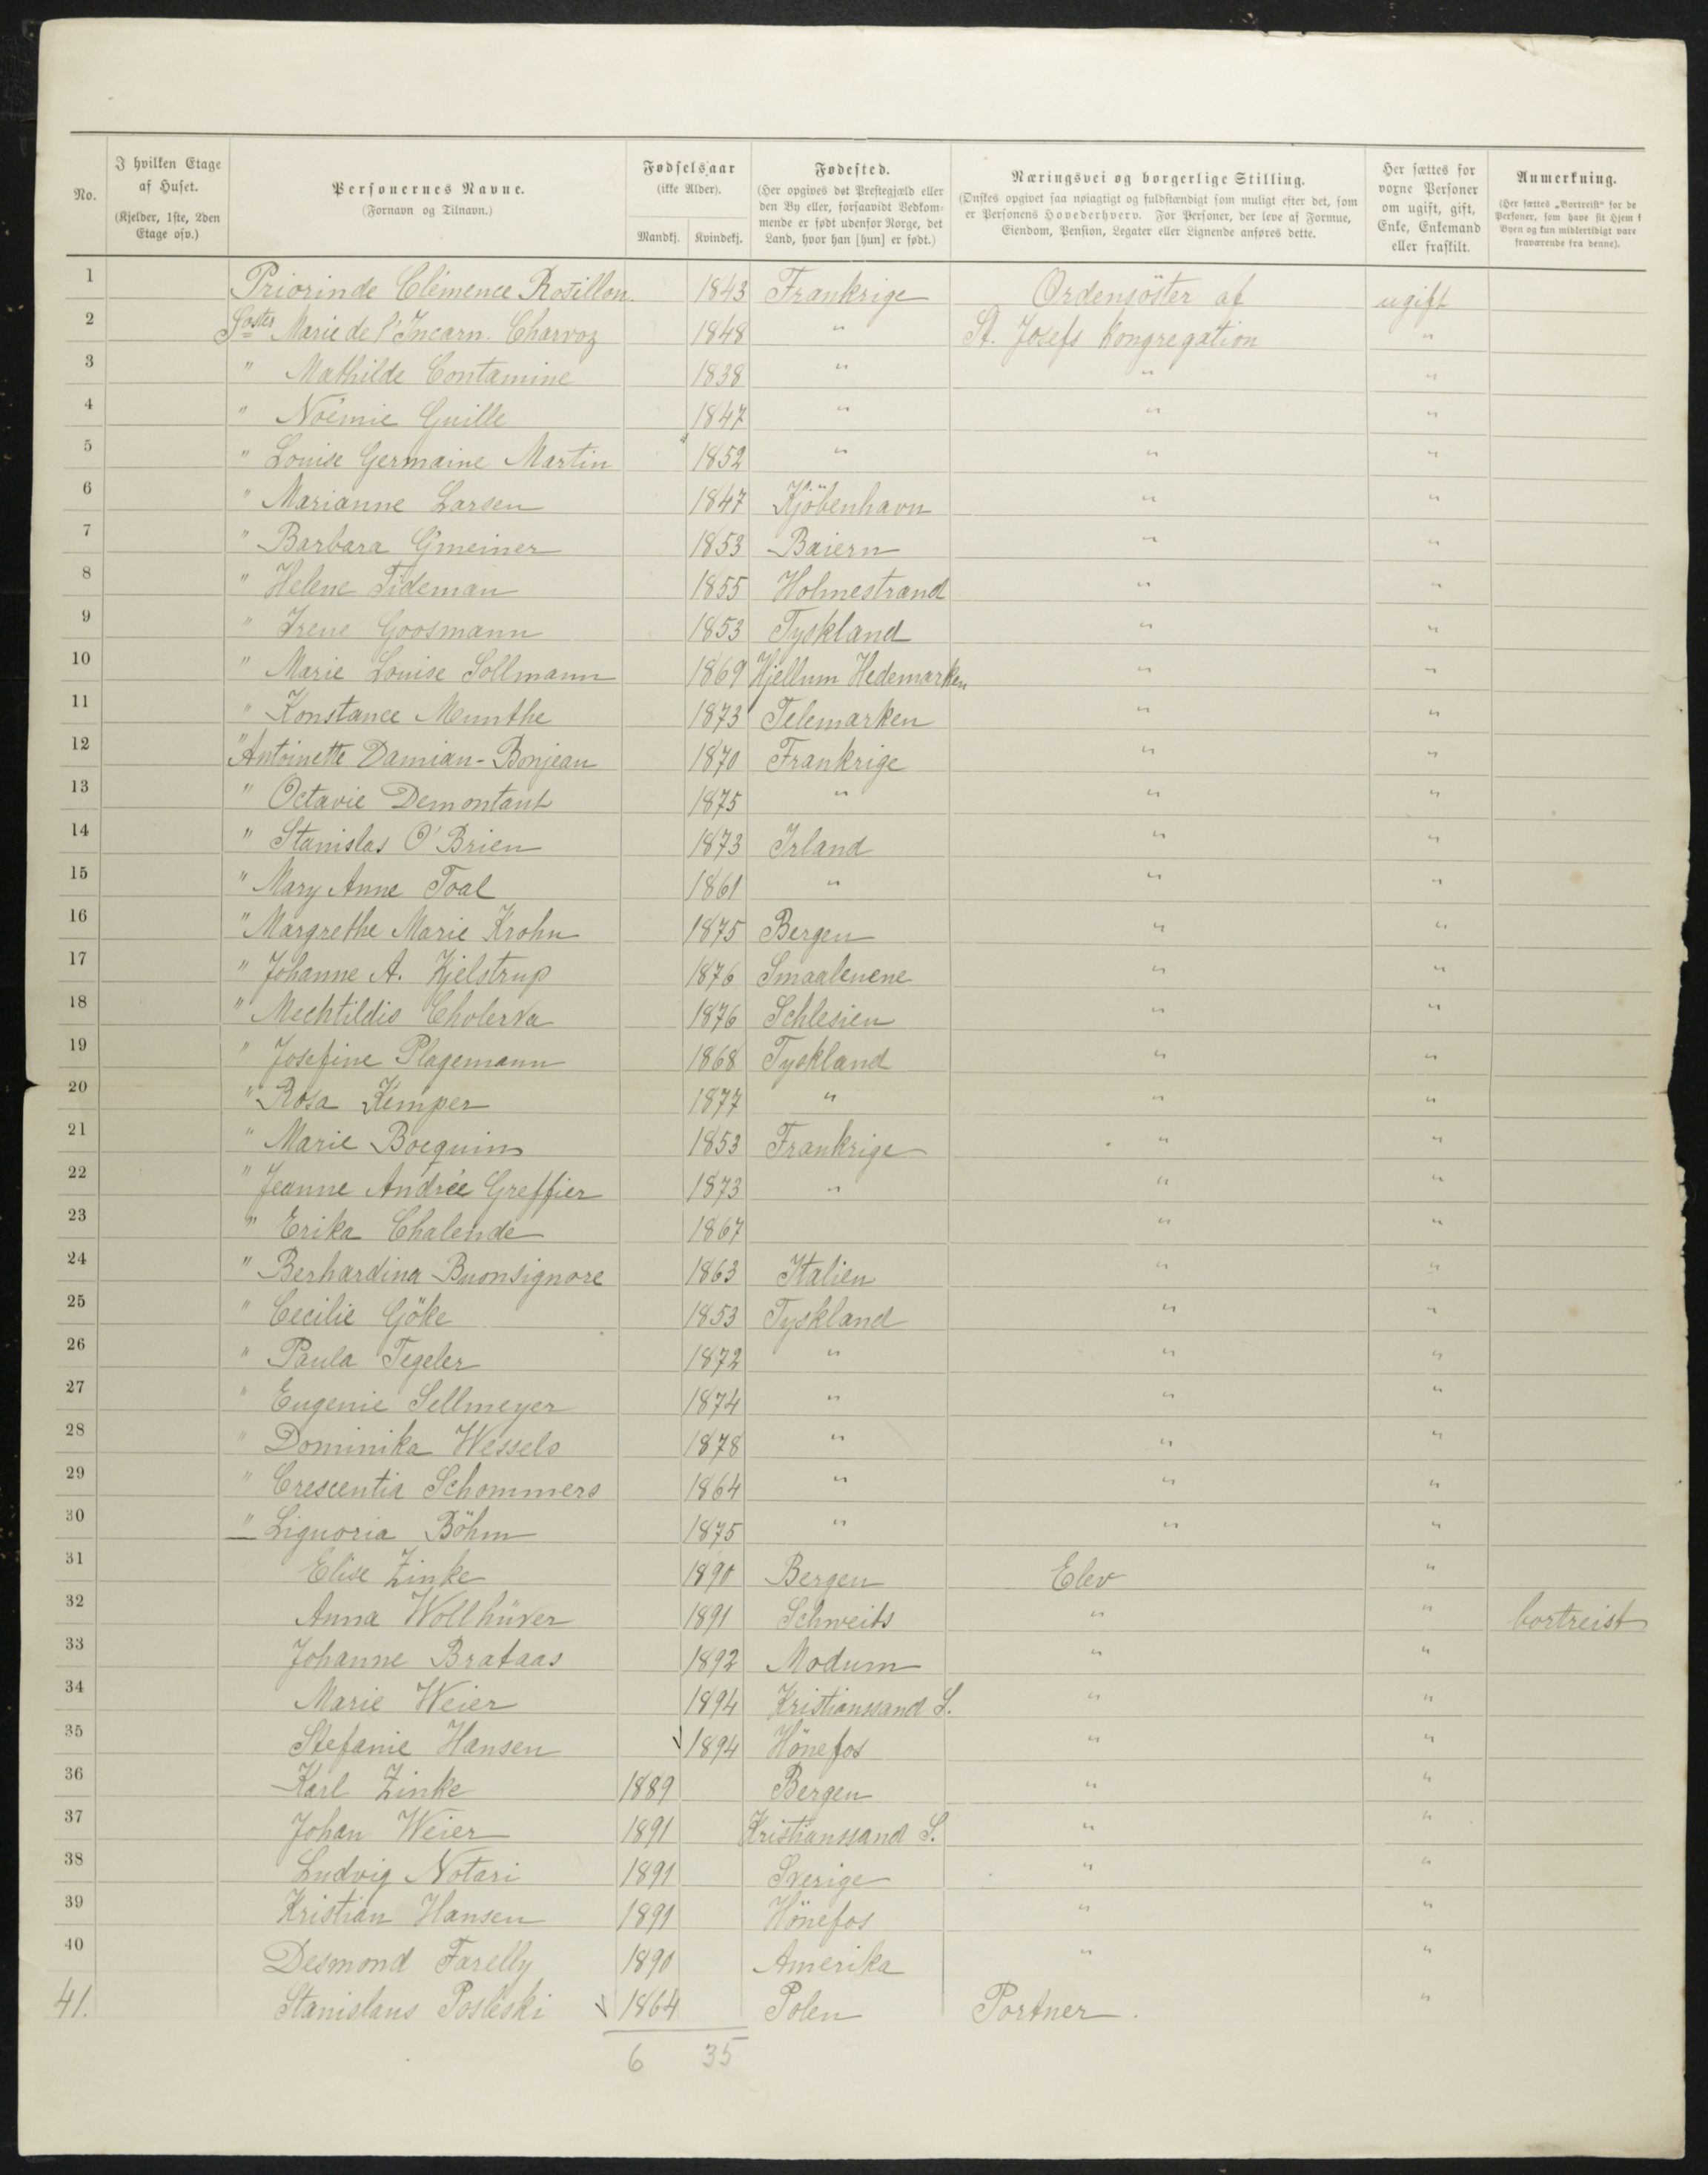 No.
I hvilken Etage af Huset. (Kjelder, 1ste, 2den Etage osv.)
Personernes Navne. (Fornavn og Tilnavn.)
Fødselsaar (ikke Alder). Mandkj. Kvindekj.
Fødested. (Her opgives det Prestegjæld eller den By eller, forsaavidt Vedkommende er født udenfor Norge, det Land, hvor han [hun] er født.)
Næringsvei og borgerlige Stilling. (Ønskes opgivet saa nøiagtigt og fuldstændigt som muligt efter det, som er Personens Hovederhverv. For Personer, der leve af Formue, Eiendom, Pension, Legater eller Lignende anføres dette.
Her sættes for voxne Personer om ugift, gift, Enke, Enkemand eller fraskilt.
Anmerkning. (Her sættes „Bortreist“ for de Personer, som have sit Hjem i Byen og kun midlertidigt vare fraværende fra denne).
1 Priorinde Clémence Rosillon. 1843 Frankrige Ordensöster af ugift
2 Söster Marie de l'Incarn. Charvoz 1848 " St. Josefs Kongregation "
3 " Mathilde Contamine 1838 " " "
4 " Noémie Guille 1847 " " "
5 " Louise Germaine Martin 1852 " " "
6 " Marianne Larsen 1847 Kjöbenhavn " "
7 " Barbara Gmeiner 1853 Baiern " "
8 " Helene Tideman 1855 Holmestrand " "
9 " Irene Goosmann 1853 Tyskland " "
10 " Marie Louise Sollmann 1869 Hjellum Hedemarken " "
11 " Konstance Munthe 1873 Telemarken " "
12 " Antoinette Damian-Bonjean 1870 Frankrige " "
13 " Octavie Demontant 1875 " " "
14 " Stanislas O'Brien 1873 Irland " "
15 " Mary Anne Toal 1861 " " "
16 " Margrethe Marie Krohn 1875 Bergen " "
17 " Johanne A. Kjelstrup 1876 Smaalenene " "
18 " Mechtildis Cholerva 1876 Schlesien " "
19 " Josefine Plagemann 1868 Tyskland " "
20 " Rosa Kemper 1877 " " "
21 " Marie Bocquin 1853 Frankrige " "
22 " Jeanne Andrée Greffier 1873 " " "
23 " Erika Chalende 1867 " "
24 " Berhardina Buonsignore 1863 Italien " "
25 " Cecilie Göke 1853 Tyskland " "
26 " Paula Tegeler 1872 " " "
27 " Eugenie Sellmeyer 1874 " " "
28 " Dominika Wessels 1878 " " "
29 " Crescentia Schommers 1864 " " "
30 " Liguoria Böhm 1875 " " "
31 Elise Zinke 1890 Bergen Elev "
32 Anna Wollhüver 1891 Schweits " " bortreist
33 Johanne Brataas 1892 Modum " "
34 Marie Weier 1894 Kristianssand S. " "
35 Stefanie Hansen 1894 Hönefos " "
36 Karl Zinke 1889 Bergen " "
37 Johan Weier 1891 Kristianssand S. " "
38 Ludvig Notari 1891 Sverige " "
39 Kristian Hansen 1891 Hönefos " "
40 Desmond Farelly 1890 Amerika " "
41. Stanislaus Posleski 1864 Polen Portner. "
6 35